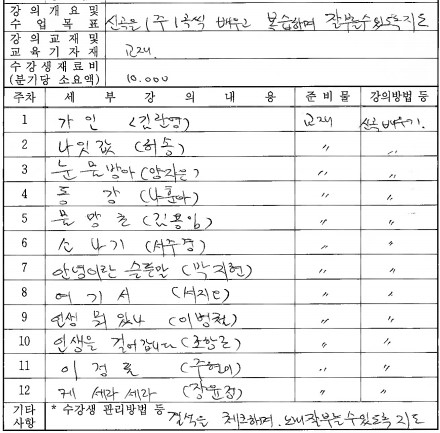 강의개요및 수업목표 신곡을 1주 1곡씩 배우고 복습하며 잘부를수있도록지도
강의교재및 교육기자재 교재
수강생재료비 (분기당 소요액) 10.000
주차 세부강의내용 준비물 강의방법 등
1 가인 (김란영) 교재 신곡배우기.
2 나잇값 (허송) 〃 〃
3 눈물방아 (양지은) 〃 〃
4 동강 (나훈아) 〃 〃
5 물망초 (김용임) 〃 〃
6 소나기 (서주경) 〃 〃
7 안녕이란 슬픈말 (박지현) 〃 〃
8 여기서 (서지오) 〃 〃
9 인생 뭐 있나 (이병철) 〃 〃
10 인생을 걸어갑니다 (조항조) 〃 〃
11 이정표 (주현미) 〃 〃
12 케 세라 세라 (장윤정) 〃 〃
기타사항 * 수강생 관리방법 등 결석을 체크하며. 노래잘부를수있도록 지도